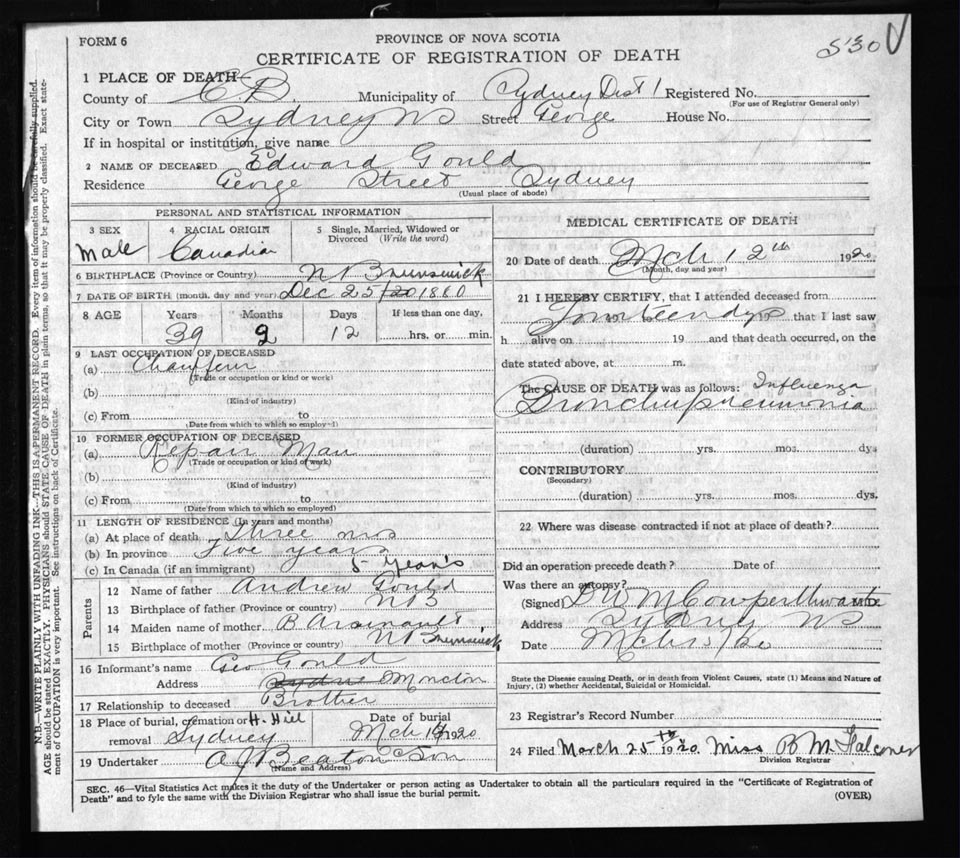 FORM 6
PROVINCE OF NOVA SCOTIA
530
CERTIFICATE OF REGISTRATION OF DEATH
1 PLACE OF DEATH—
County of C B. Municipality of Sydney Dist 1 Registered No.
(For use of Registrar General only)
City or Town Sydney NS Street George House No.
If in hospital or institution, give name
2 NAME OF DECEASED Edward Gould
Residence George Street Sydney
(Usual place of abode)
PERSONAL AND STATISTICAL INFORMATION
3 SEX 4 RACIAL ORIGIN 5 Single, Married, Widowed or Divorced (Write the word)
Male Canadian
6 BIRTHPLACE (Province or Country) N Brunswick
7 DATE OF BIRTH (month, day and year) Dec 25/20 1880
8 AGE Years Months Days If less than one day,
39 2 12 hrs. or min.
9 LAST OCCUPATION OF DECEASED
(a) Chauffeur
(Trade or occupation or kind or work)
(b)
(Kind of industry)
(c) From to
(Date from which to which so employed)
10 FORMER OCCUPATION OF DECEASED
(a) Repair Man
(Trade or occupation or kind of work)
(b)
(Kind of industry)
(c) From to
(Date from which to which so employed)
11 LENGTH OF RESIDENCE (In years and months)
(a) At place of death Three mos
(b) In province Five years
(c) In Canada (if an immigrant) 5 Years
Parents
12 Name of father Andrew Gould
13 Birthplace of father (Province or country) NB
14 Maiden name of mother B Arsenault
15 Birthplace of mother (Province or country) N Brunswick
16 Informant's name Geo Gould
Address Sydne Moncton
17 Relationship to deceased Brother
18 Place of burial, cremation or removal H. Hill Sydney
Date of burial Mch 1920
19 Undertaker A J Beaton & Son
(Name and Address)
MEDICAL CERTIFICATE OF DEATH
20 Date of death Mch 12th 1920
(Month, day and year)
21 I HEREBY CERTIFY, that I attended deceased from
Fourteen dys 19 to 19 that I last saw
h alive on 19 and that death occurred, on the
date stated above, at m.
The CAUSE OF DEATH was as follows: Influenza
Bronchopneumonia
(duration) yrs. mos. dys
CONTRIBUTORY
(Secondary)
(duration) yrs. mos. dys.
22 Where was disease contracted if not at place of death?
Did an operation precede death? Date of
Was there an autopsy?
(Signed) D W M Cowperthwaite M.D.
Address Sydney NS
Date Mch
State the Disease causing Death, or in death from Violent Causes, state (1) Means and Nature of
Injury, (2) whether Accidental, Suicidal or Homicidal.
23 Registrar's Record Number
24 Filed March 25th 1920. Miss B M Falconer
Division Registrar
SEC. 46—Vital Statistics Act makes it the duty of the Undertaker or person acting as Undertaker to obtain all the particulars required in the "Certificate of Registration of
Death" and to fyle the same with the Division Registrar who shall issue the burial permit.
(OVER)
N.B.—WRITE PLAINLY WITH UNFADING INK—THIS IS A PERMANENT RECORD. Every item of information should be carefully supplied.
AGE should be stated EXACTLY. PHYSICIANS should STATE CAUSE OF DEATH in plain terms, so that it may be properly classified. Exact state-
ment of OCCUPATION is very important. See instructions on back of Certificate.